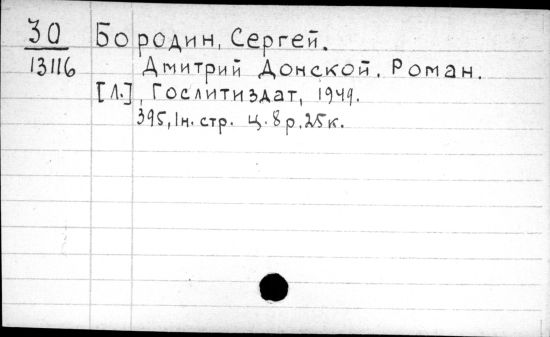 30 Бородин, Сергей.
13116 Дмитрий Донской. Роман.
[Л.], Гослитиздат, 1949.
395, 1н. стр. ц. 8 р. 25 к.